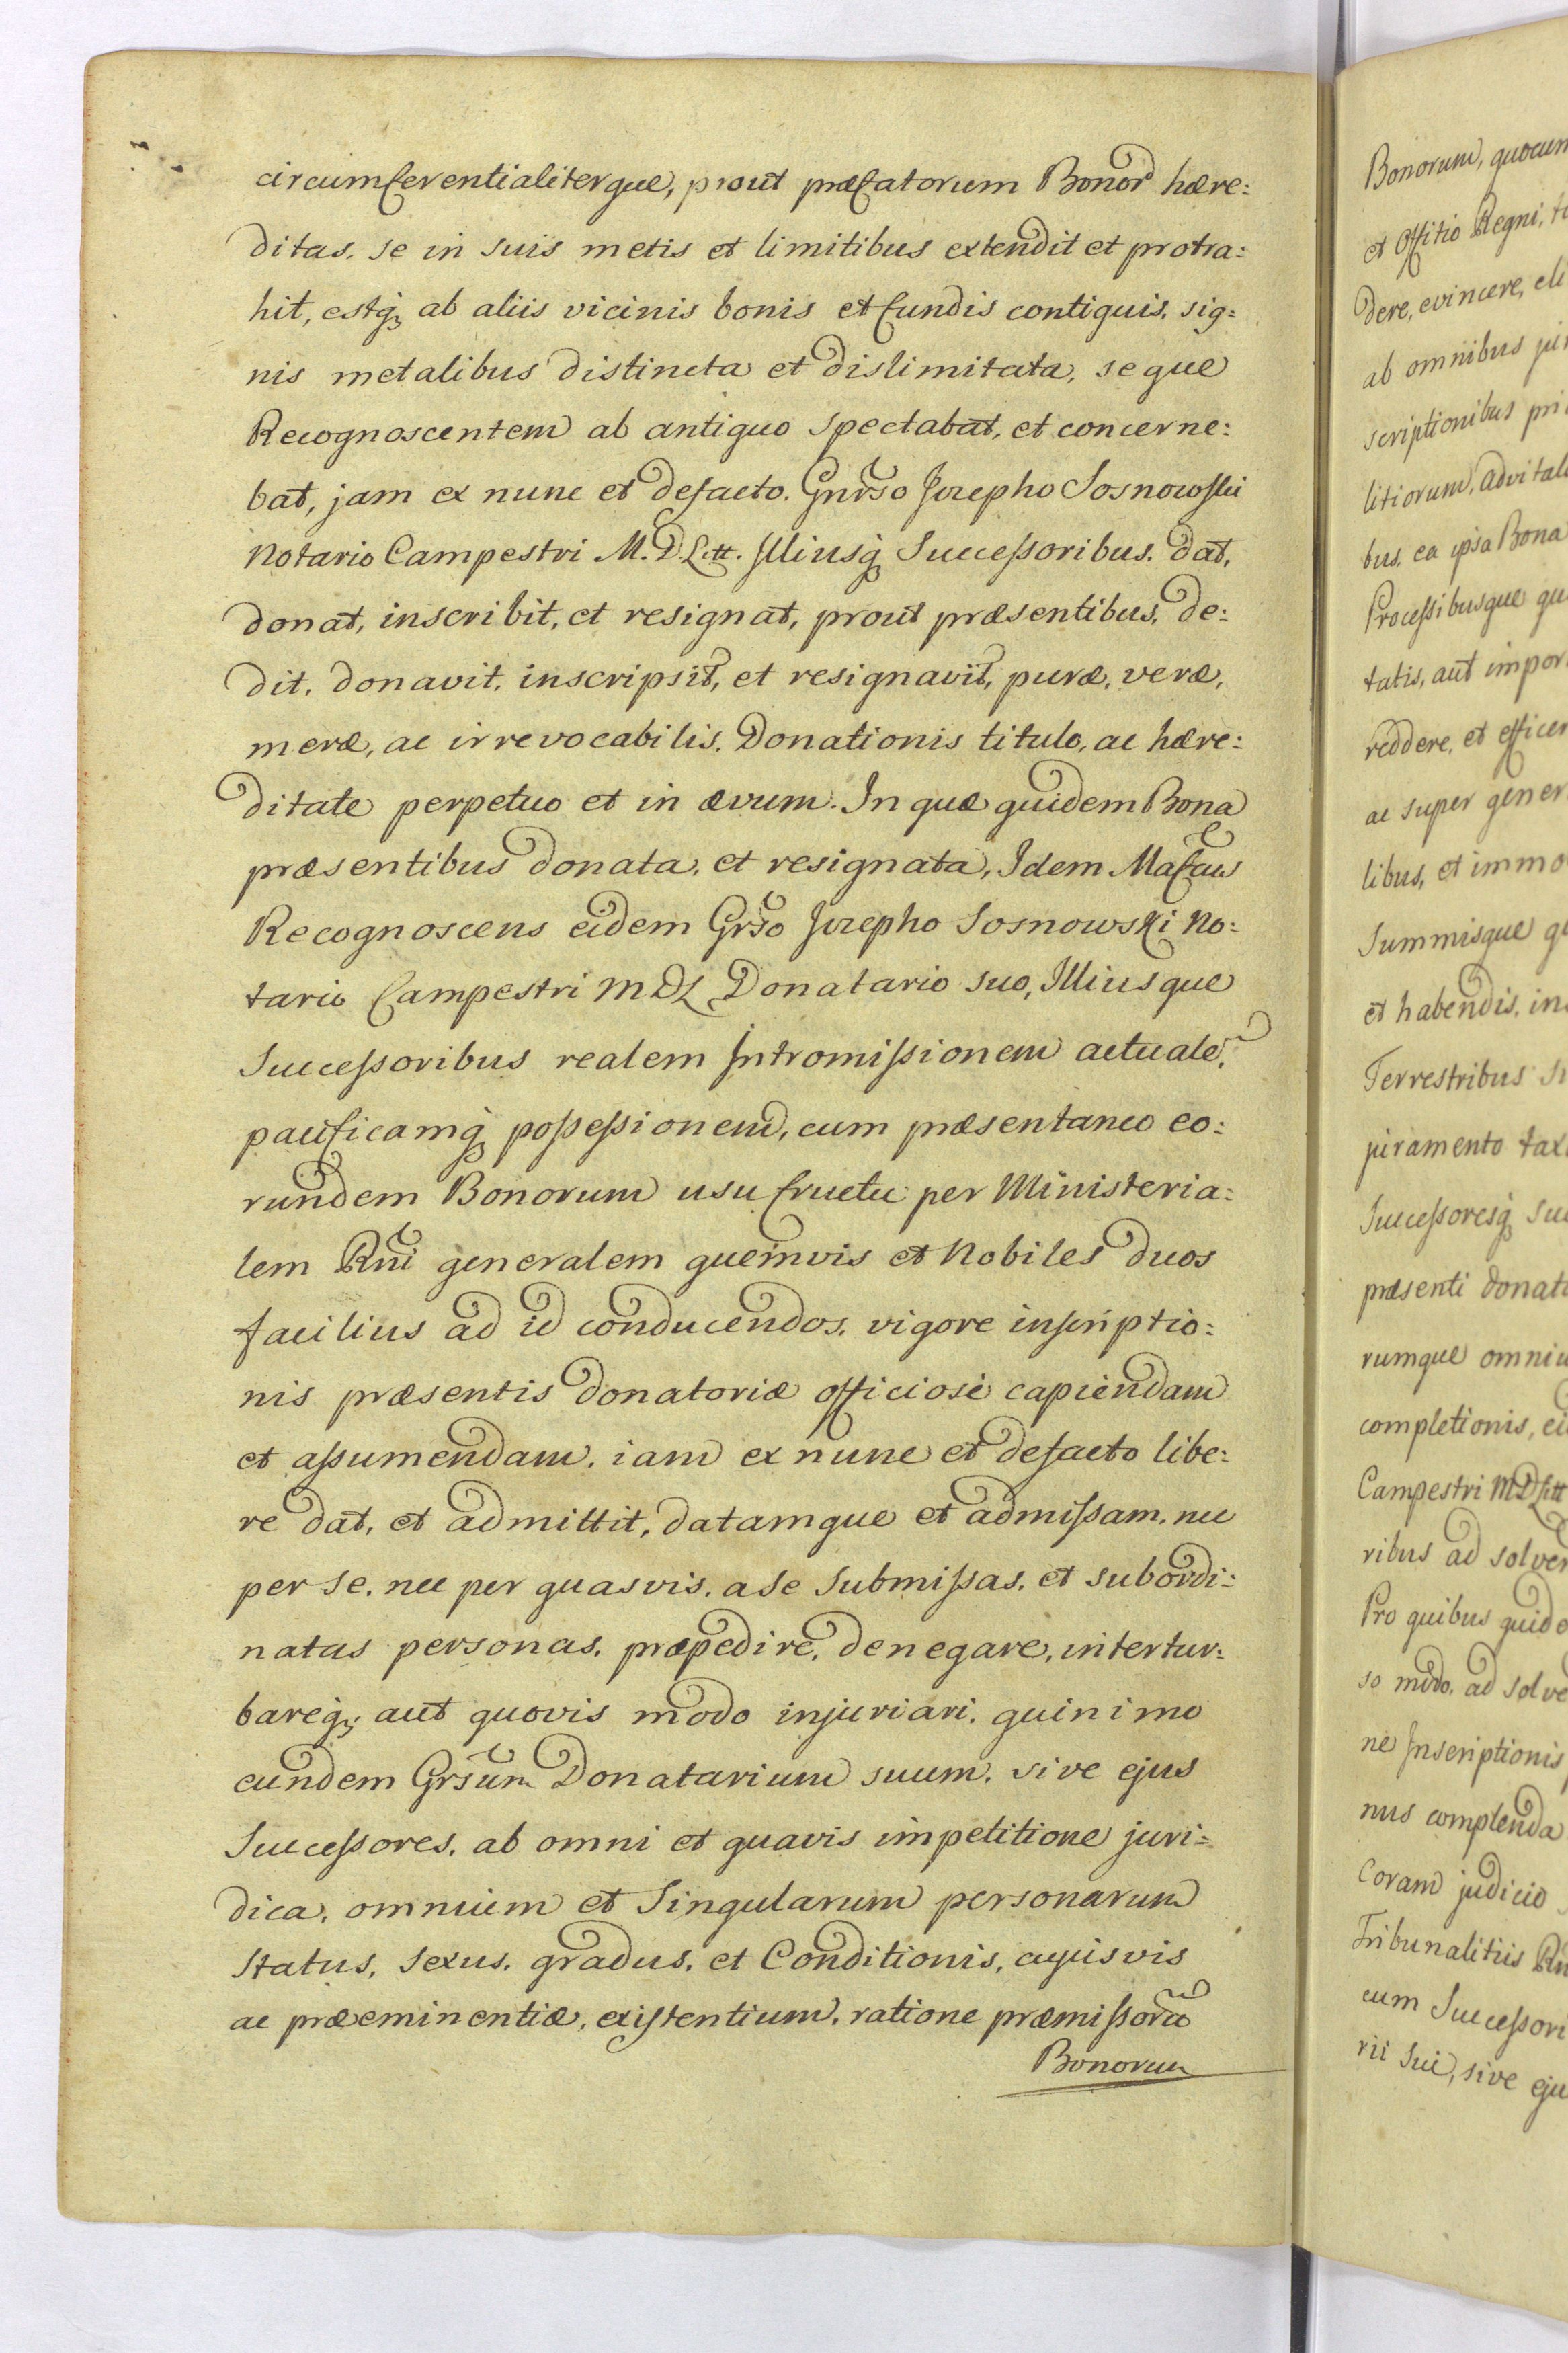 circumferentialiterque, prout præfatorum Bonor hære:
ditas. se in suis metis et limitibus extendit et protra:
hit, estq ab aliis vicinis bonis et fundis contiguis, sig:
nis metalibus distincta et dislimitata, seque
Recognoscentem ab antiquo spectabat, et concerne:
bat, jam ex nunc et defacto. Gnrso Josepho Sosnowski
Notario Campestri M. D Litt. Illiusq Successoribus. dat,
donat, inscribit, et resignat, prout præsentibus, de:
dit. donavit. inscripsit, et resignavit, puræ, veræ,
meræ, ac irrevocabilis. Donationis titulo, ac hære:
ditate perpetuo et in ævum. In quæ quidem Bona
præsentibus donata, et resignata, Idem
Recognoscens eidem Grso Josepho Sosnowski No:
tario Campestri M D L Donatario suo, Illiusque
Successoribus realem Intromissionem actuale,
pacificamq possessionem, cum præsentaneo eo:
rundem Bonorum usu fructu per Ministeria:
lem Rni generalem quemvis et Nobiles duos
facilius ad id conducendos. vigore inscriptio:
nis præsentis donatoriæ officiose capiendam
et assumendam. iam ex nunc et defacto libe:
re dat, et admittit, datamque et admissam. nec
per se. nec per quasvis. a se submissas. et subordi:
natas personas. præpedire, denegare, intertur:
bareq; aut quovis modo injuriari. quinimo
eundem Grsum Donatarium suum. sive ejus
Successores. ab omni et quavis impetitione juri:
dica, omnium et Singularum personarum
status, sexus. gradus. et Conditionis, cujusvis
ac præeminentiæ, existentium. ratione præmissoru
Bonorum
Bonorum,
et Offitio Regni,
dere, evincere,
ab omnibus
scriptionibus
litiorum,
bus. ea ipsa Bona
Processibusque
tatis, aut
reddere, et
ac super
libus, et
Summisque
et habendis.
Terrestribus
juramento
Successoresq
præsenti
rumque
completionis,
Campestri M D Litt
ribus ad
Pro quibus
so modo. ad
ne Inscriptionis
nus complenda
Coram judicio
Tribunalitiis
cum
rii sui, sive